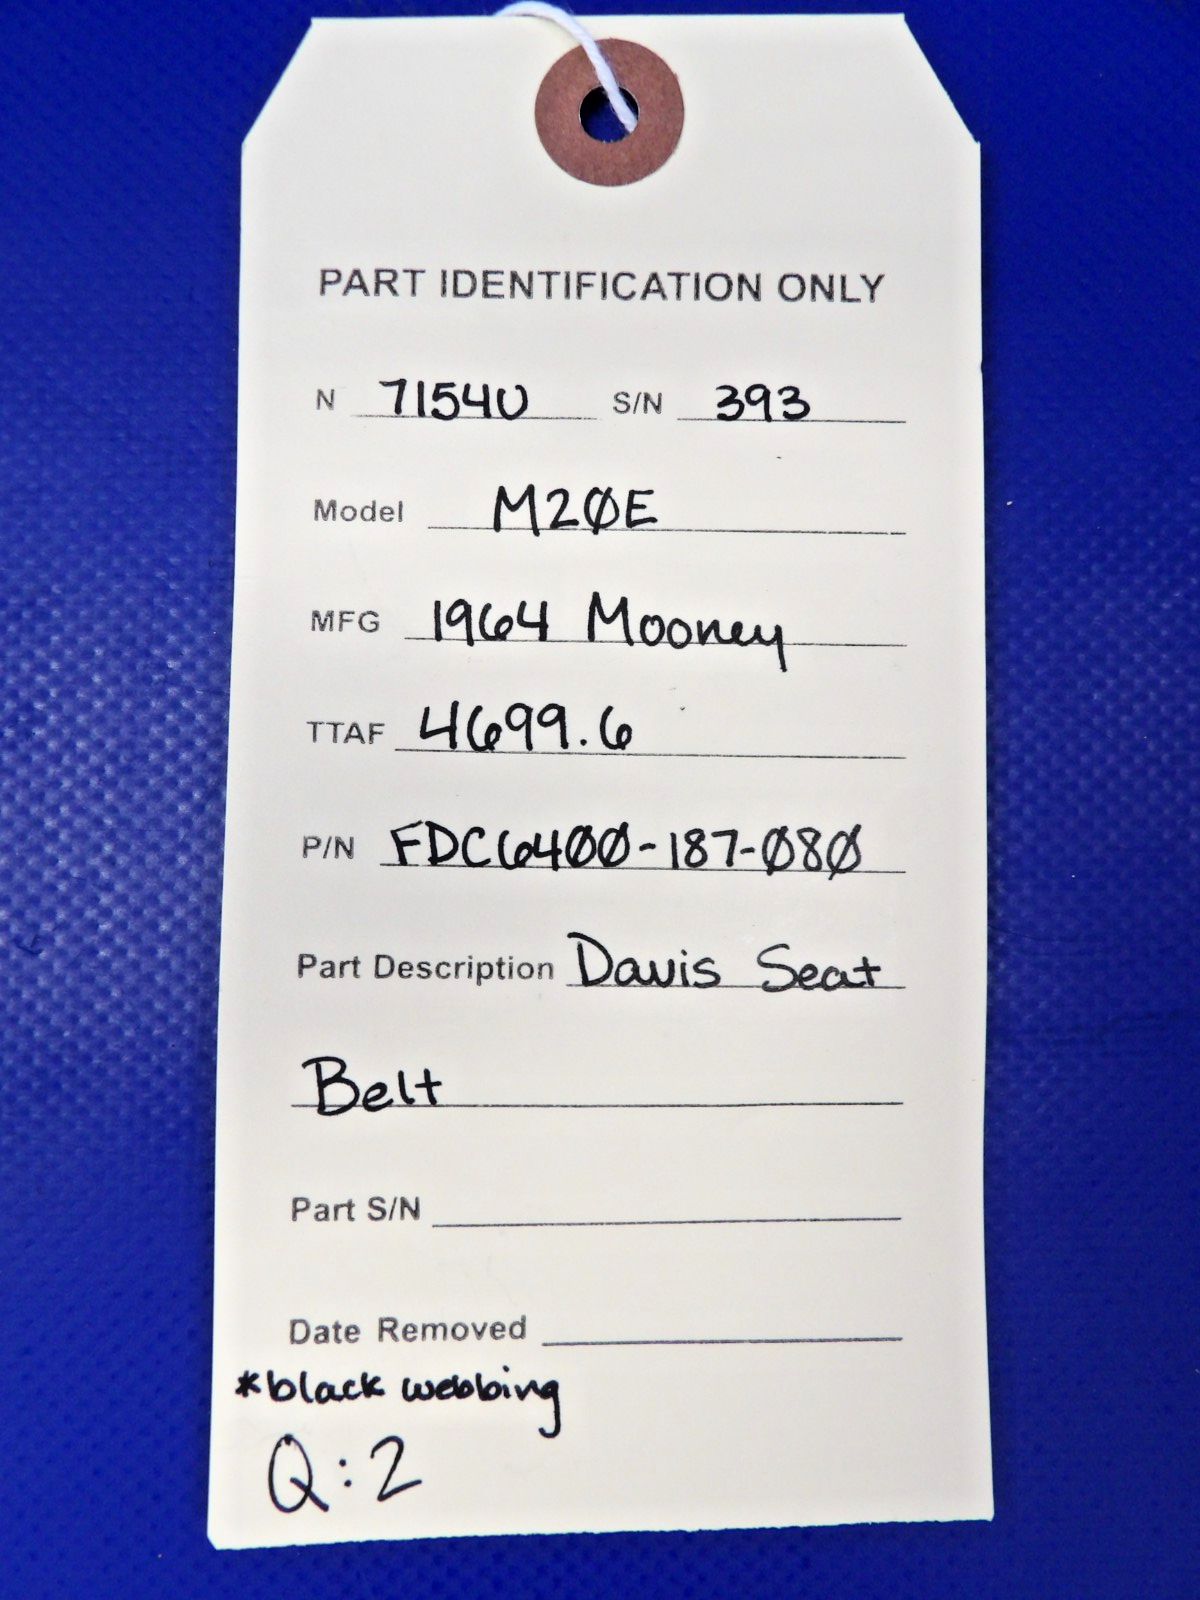 PART IDENTIFICATION ONLY
N 7154U S/N 393
Model M2ØE
MFG 1964 Mooney
TTAF 4699.6
P/N FDC64ØØ-187-Ø8Ø
Part Description Davis Seat
Belt
Part S/N
Date Removed
*black webbing
Q:2